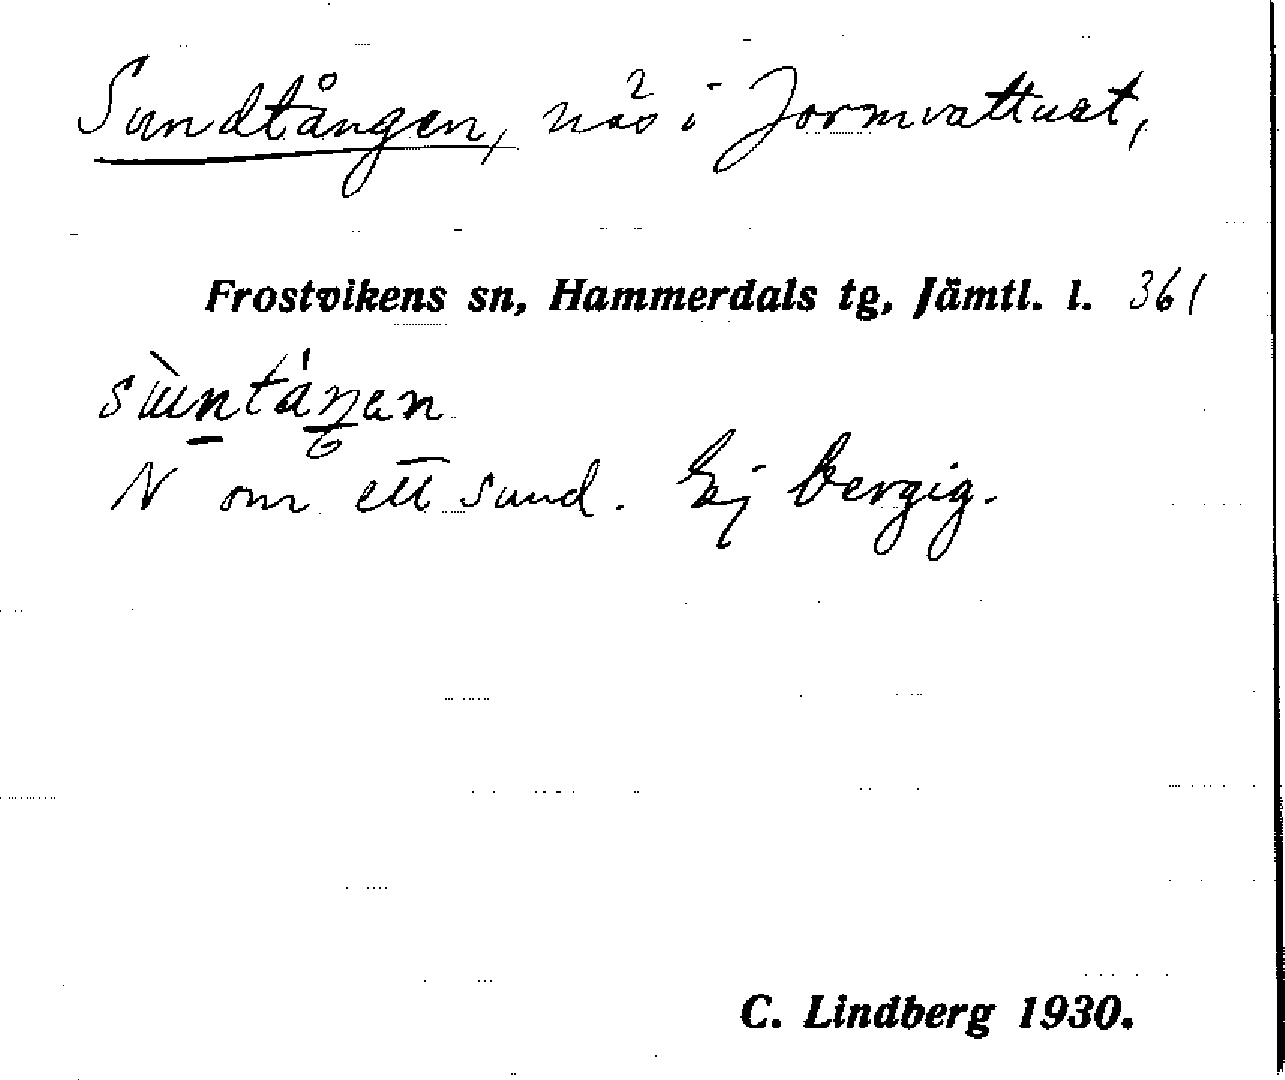 Sundtången, näs i Jormvattnet,
Frostvikens sn, Hammerdals tg, Jämtl. l. 361
N om ett sund. Ej bergig.
C. Lindberg 1930.